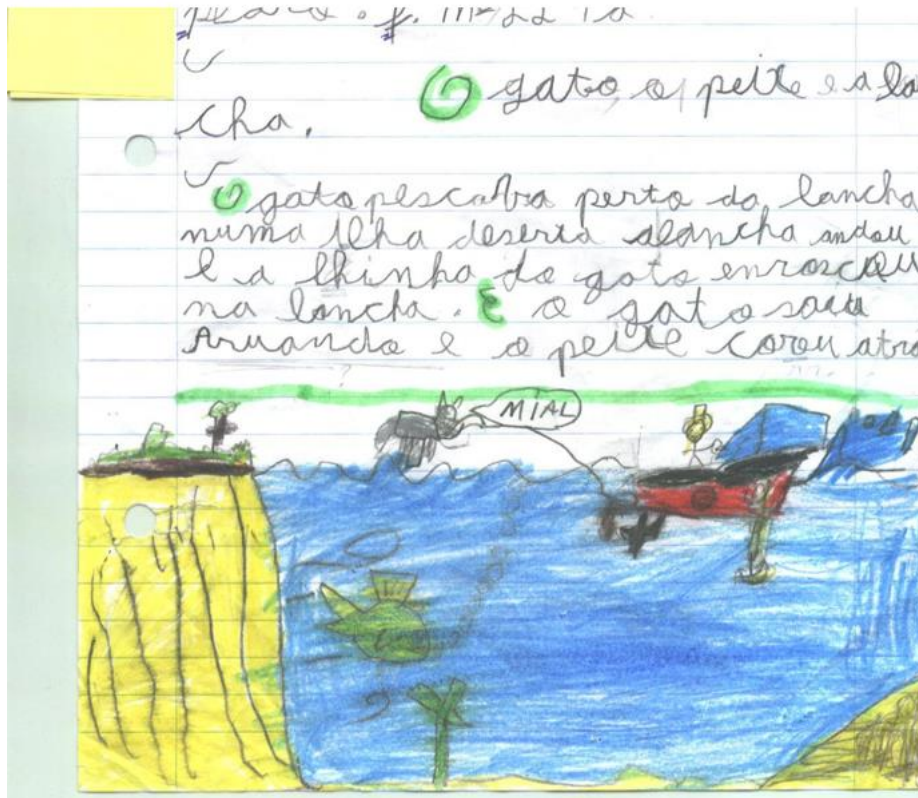 O gato, o peite e a la
cha.
O gato pescava perto da lancha
numa ilha deserta alancha andou
e a lhinha do gato enroscou
na lancha. E o gato saiu
e o peite coreu atra
MIAL